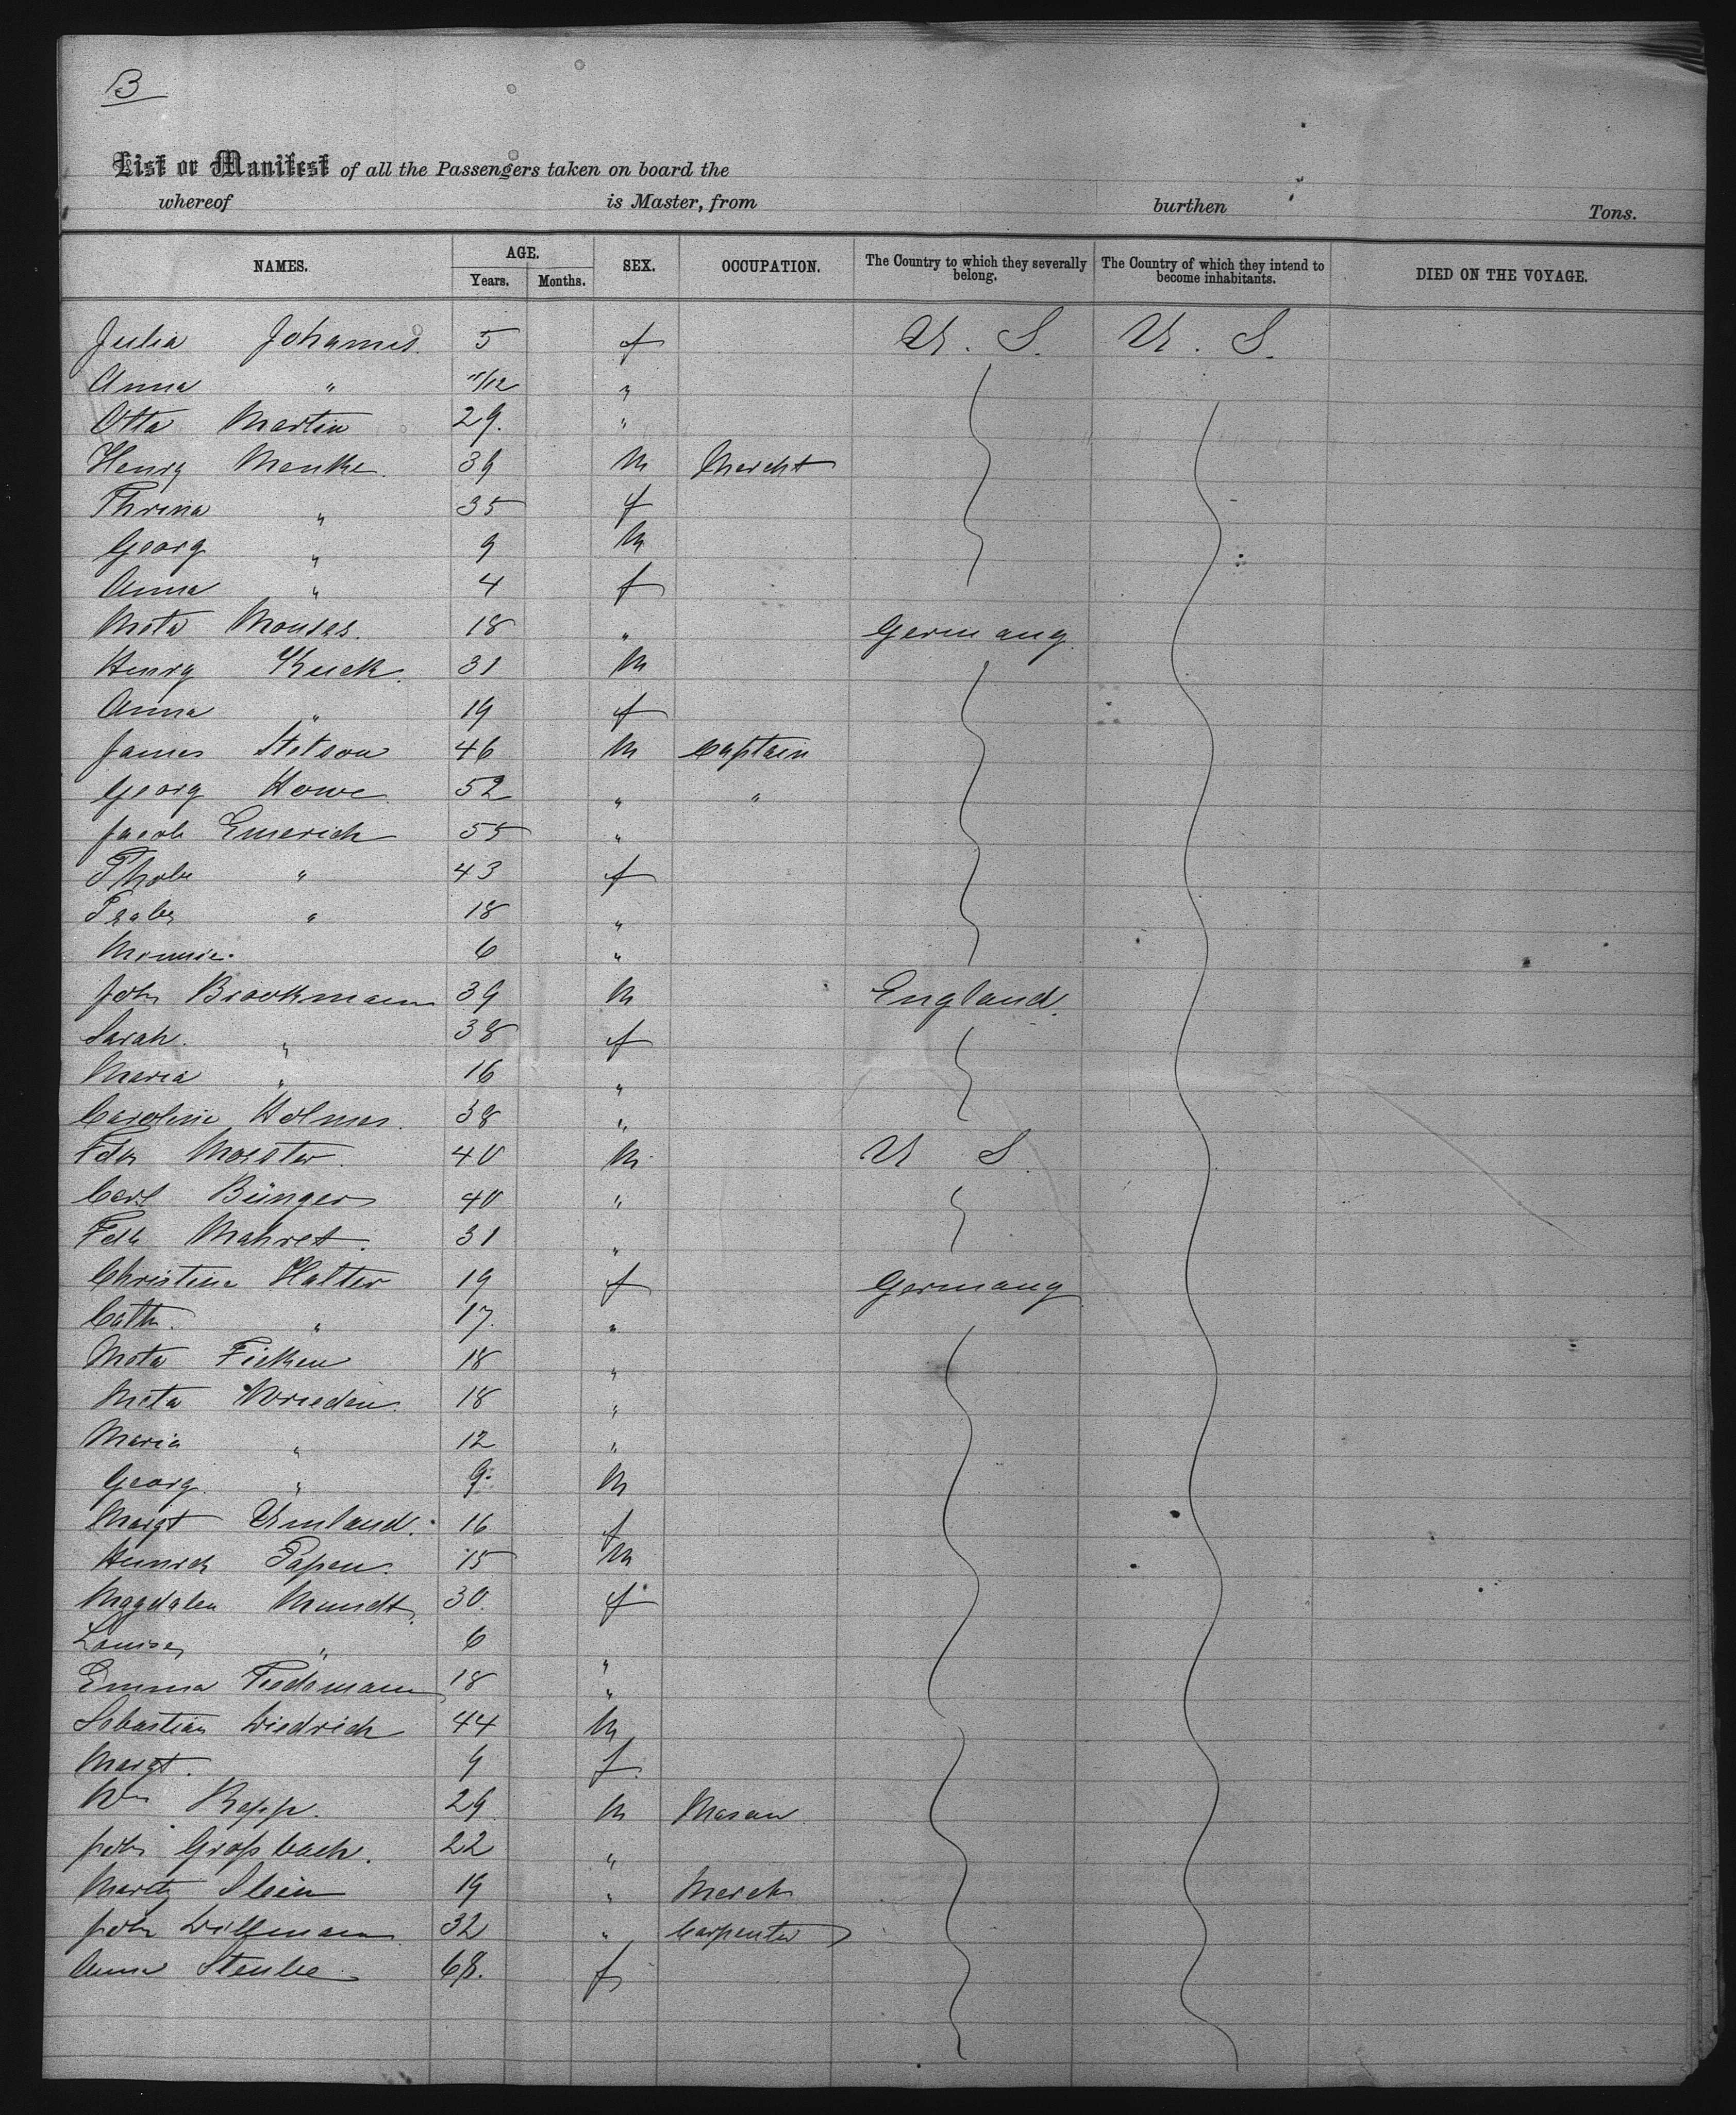 B
List or Manifest of all the Passengers taken on board the
whereof is Master, from burthen Tons.
NAMES. AGE. Years. Months. SEX. OCCUPATION. The Country to which they severally belong. The Country of which they intend to become inhabitants. DIED ON THE VOYAGE.
Julia Johannes. 5 f U. S. U. S.
Anna " 11/12 "
Otta Martin 29. "
Henry Menke. 39 M Mercht
Thrina " 35 f
Georg " 9 M
Anna " 4 f
Meta 18 " Germany.
Henry Kuck. 31 M
Anna " 19 f
James Stetson 46 M Captain
Georg Howe 52 " "
Jacob Emerich 55 "
Phobe " 43 f
" 18 "
Minnie. 6 "
John Brookmann 39 M England.
Sarah. " 38 f
Maria " 16 "
Caroline Holmes. 38 "
Fdk 40 M U S.
Carl Bünger 40 "
Fdk Mahret. 31 "
Christine Halter 19 f Germany
Cath. " 17. "
Meta Ficken 18 "
Meta Wrieden. 18 "
Maria " 12 "
Georg. " 9. M
Margt Umland. 16 f
Heinrich Papen. 15 M
Magdalen Mundt. 30. f
Louise " 6 "
Emma Tiedemann 18 "
Sebastian Diedrich 44 M
Margt. 9 f.
Wm Repp. 29 M Mason
John Großbach. 22 "
Moritz Stein 19 " Merch
John Dillmann 32 " Carpenter
Anna Steube 68. f